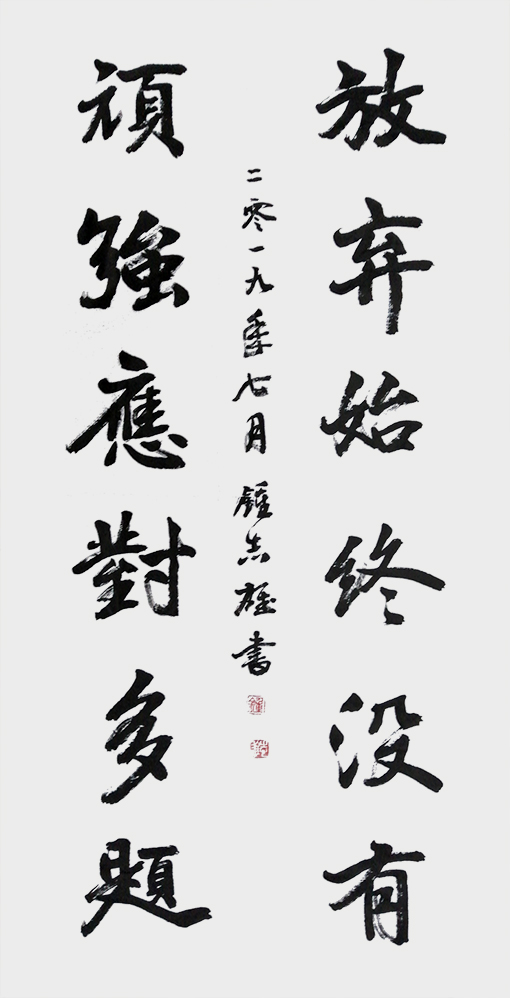 放弃始终没有
頑強應對多題
二零一九年七月鍾志雄書